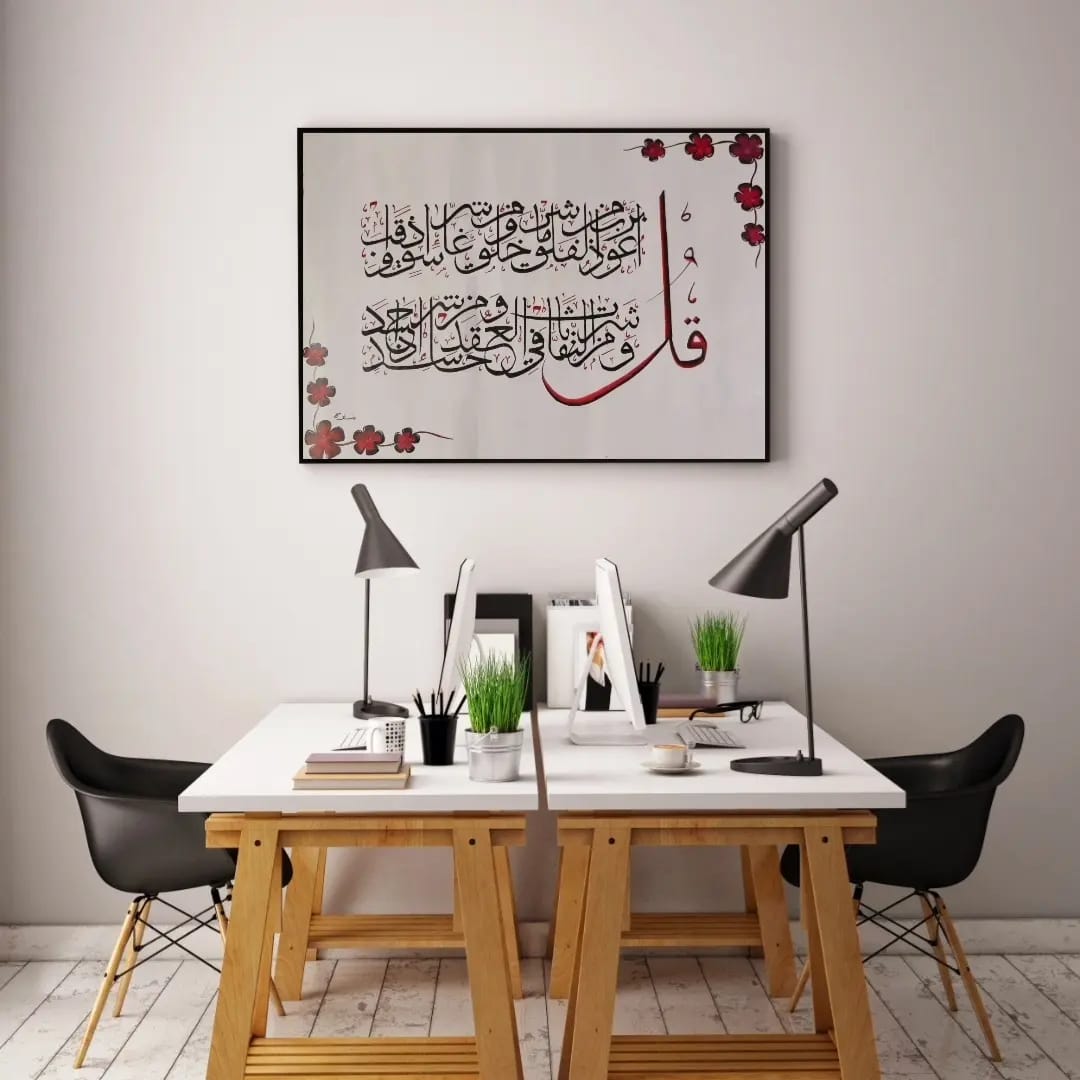 قُل
أعوذ برب الفلق من شر ما خلق ومن شر غاسق إذا وقب
ومن شر النفاثات في العقد ومن شر حاسد إذا حسد